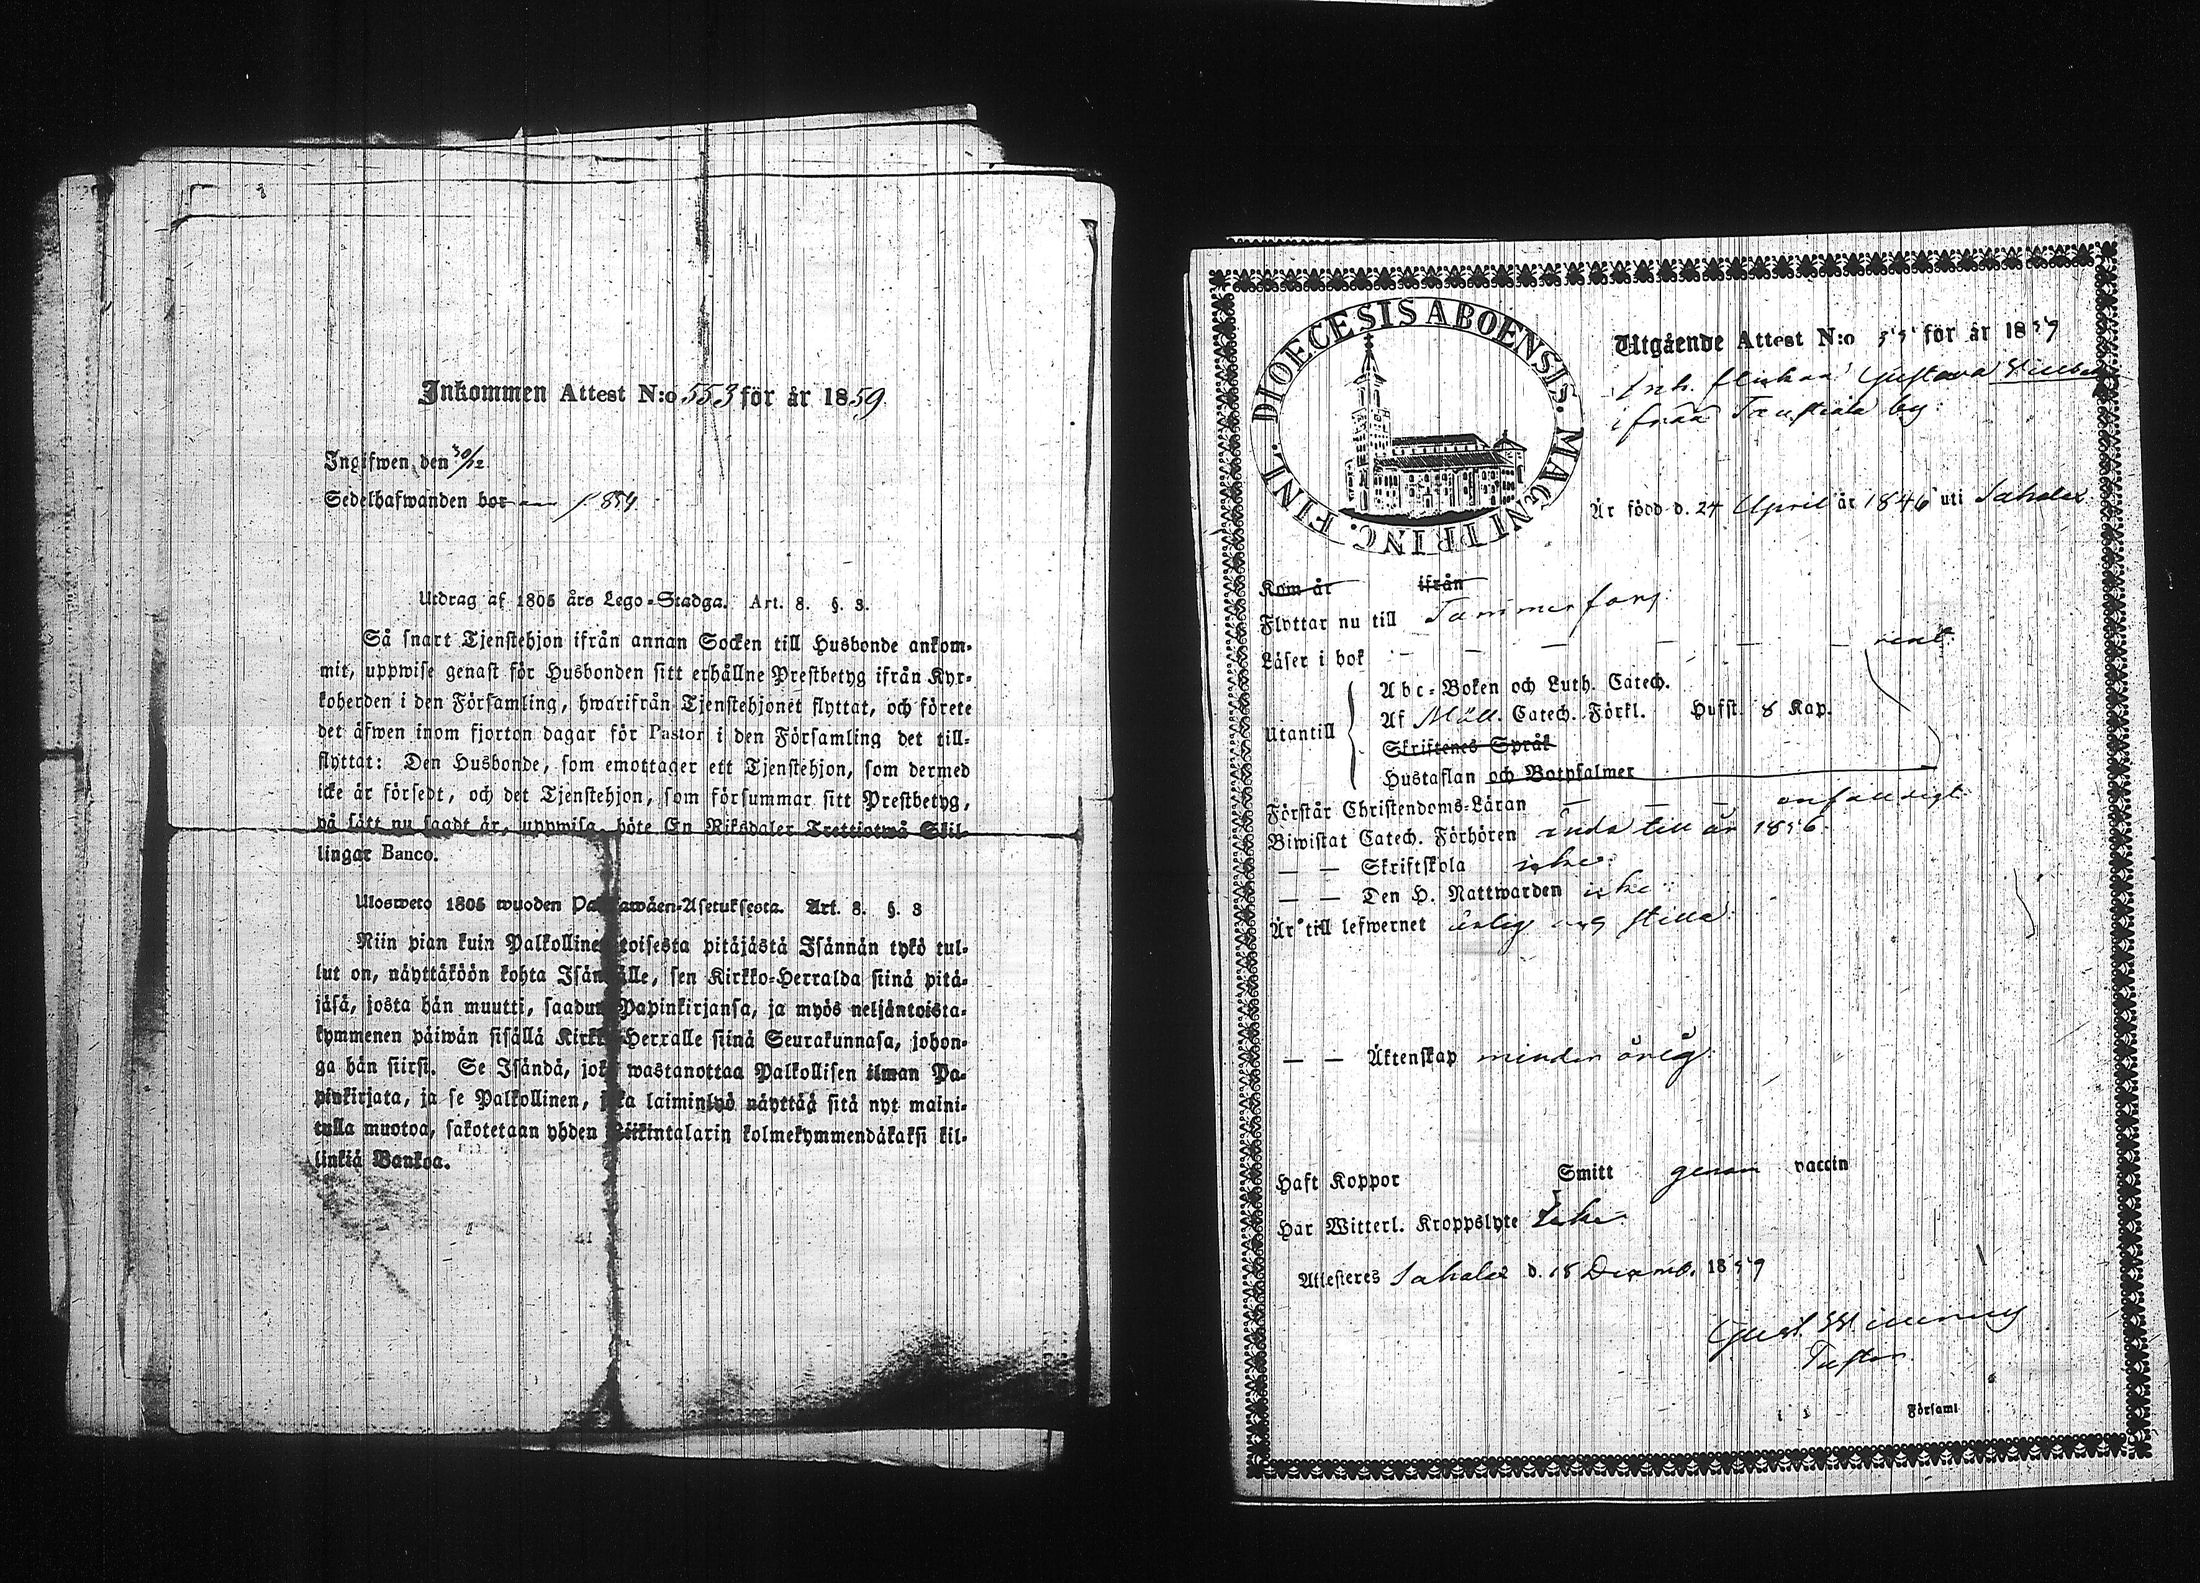 Inkommen Attest N:o 553 för år 1859
Ingifwen den 30/12
Sedelhafwanden bor
Utdrag af 1805 års Lego-Stadga. Art. 8. §. 3.
Så snart Tjenstehjon ifrån annan Socken till Husbonde ankom-
mit, uppwise genast för Husbonden sitt erhållne Prestbetyg ifrån Kyr-
koherden i den Församling, hwarifrån Tjenstehjonet flyttat, och förete
det åfwen inom fjorton dagar för Pastor i den Församling det till-
flyttat: Den Husbonde, som emottager ett Tjenstehjon, som dermed
icke är försedt, och det Tjenstehjon, som försummar sitt Prestbetyg,
på sätt nu sagdt är, uppwisa, böte En Riksdaler Trettiotwå Skil-
lingar Banco.
Uloswetо 1805 wuoden Palkkawäen-Asetuksesta. Art. 8. §. 3
Niin pian kuin Palkollinen toisesta pitäjästä Isännän tykö tul-
lut on, näyttäköön kohta Isännälle, sen Kirkko-Herralda siinä pitä-
jäsä, josta hän muutti, saadun Papinkirjansa, ja myös neljäntoista-
kymmenen päiwän sisällä Kirkko-Herralle siinä Seurakunnasa, johon-
ga hän siirsi. Se Isändä, joka wastanottaa Palkollisen ilman Pa-
pinkirjata, ja se Palkollinen, joka laiminlyö näyttää sitä nyt maini-
tulla muotoa, sakotetaan yhden Riikintalarin kolmekymmendäkaksi kil-
linkiä Bankoa.
DIOECESIS ABOENSIS. MAGNI PRINC. FINL.
Utgående Attest N:o 55 för år 1859
Inh. flickan Gustava
ifrån by:
Är född d. 24 April år 1846 uti Sahalax
Kom år ifrån
Flyttar nu till Tammerfors
Läser i bok — — — — — rent
Utantill
Abc-Boken och Luth. Catech.
Af Möll. Catech. Förkl. Hufst. 8 Kap.
Skriftenes Språk
Hustaflan och Botpsalmer
Förstår Christendoms-Läran — — — enfaldigt
Biwistat Catech. Förhören ända till år 1856.
— — Skriftskola icke
— — Den H. Nattwarden icke
Är till lefwernet ärlig och stilla
— — Äktenskap minderårig
Haft Koppor Smitt genom vaccin
Har Witterl. Kroppslyte Icke
Attesteres Sahalax d. 18 Decemb. 1859
Gust.
Pastor
i Församl